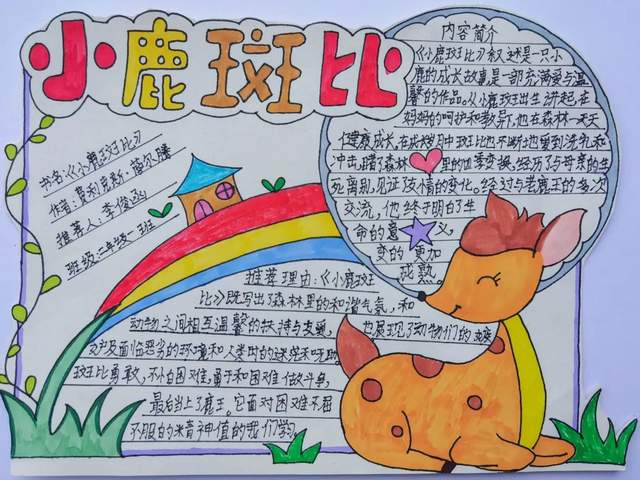 小鹿斑比
书名:《小鹿斑比》
作者:费利克斯·萨尔腾
推荐人:李俊函
班级:二年级一班
内容简介
《小鹿斑比》叙述是一只小
鹿的成长故事是一部充满爱与温
馨的作品。从小鹿斑比出生讲起,在
妈妈的呵护和教导下,他在森林一天天
健康成长,在成长月中斑比也不断地受到洗礼和
冲击,踏了森林里的四季变换,经历了与母亲的生
死离别,见证了友情的变化。经过与老鹿王的多次
交流,他终于明白了生
命的意义,
变的更加
成熟。
推荐理由:《小鹿斑
比》既写出了森林里的和谐气氛,和
动物之间相互温馨的扶持与支援,也展现了动物们的
及面临恶劣的环境和人类时的迷茫和呼助
斑比勇敢,不怕困难,勇于和困难做斗争,
最后当上了鹿王。它面对困难不屈
不服的精神值的我们学习